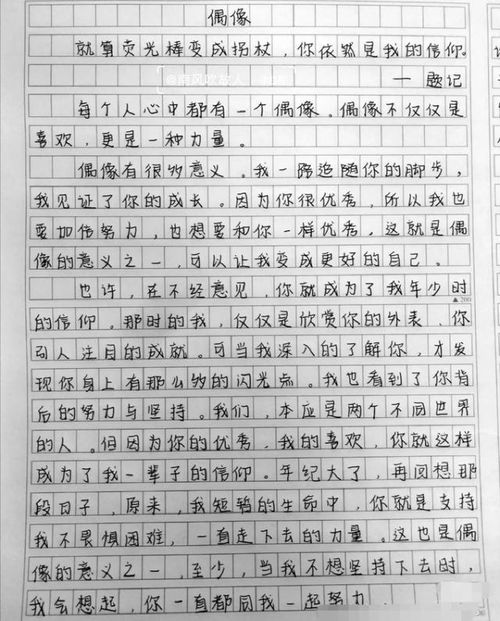 偶像
就算荧光棒变成拐杖，你依然是我的信仰。
— 题记
每个人心中都有一个偶像。偶像不仅仅是
喜欢，更是一种力量。
偶像有很多意义。我一路追随你的脚步，
我见证了你的成长。因为你很优秀，所以我也
要加倍努力，也想要和你一样优秀。这就是偶
像的意义之一，可以让我变成更好的自己。
也许，在不经意见，你就成为了我年少时
▲200
的信仰。那时的我，仅仅是欣赏你的外表、你
引人注目的成就。可当我深入的了解你，才发
现你身上有那么多的闪光点。我也看到了你背
后的努力与坚持。我们，本应是两个不同世界
的人。但因为你的优秀，我的喜欢，你就这样
成为了我一辈子的信仰。年纪大了，再回想那
段日子，原来，我短暂的生命中，你就是支持
我不畏惧困难，一直走下去的力量。这也是偶
像的意义之一，至少，当我不想坚持下去时，
我会想起，你一直都同我一起努力